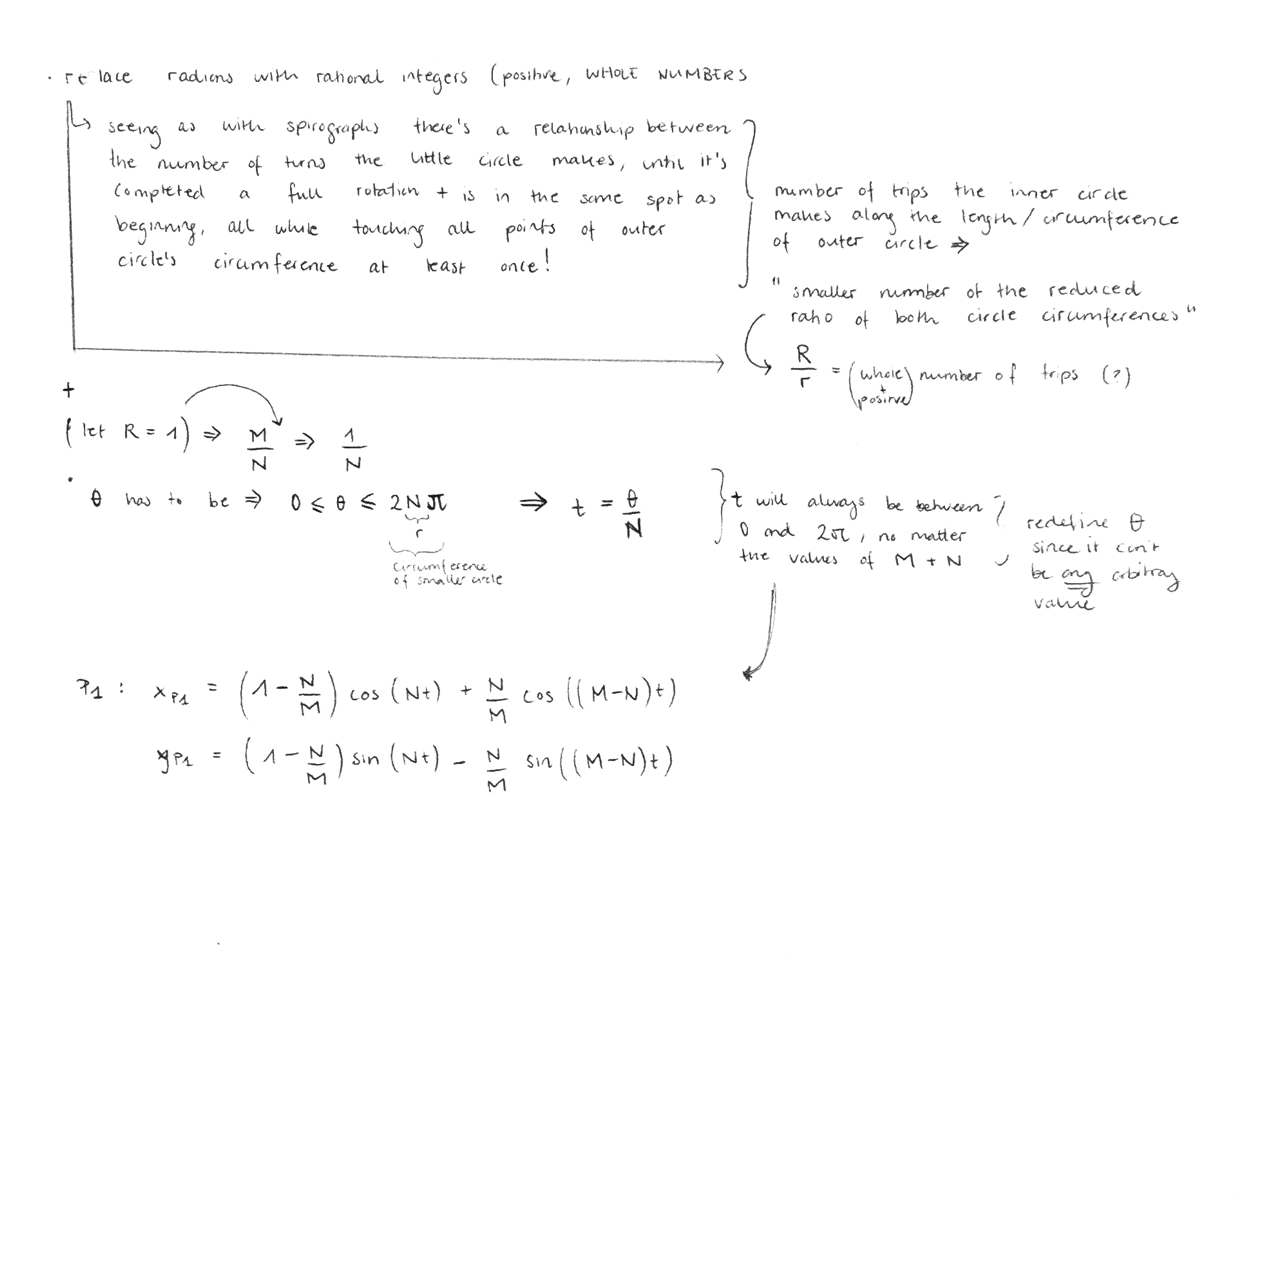 · re lace radians with rational integers (positive, WHOLE NUMBERS
↳ seeing as with spirographs there's a relationship between
the number of turns the little circle makes, until it's
completed a full rotation + is in the same spot as
beginning, all while touching all points of outer
circle's circumference at least once!
number of trips the inner circle
makes along the length/circumference
of outer circle ⇒
"smaller number of the reduced
ratio of both circle circumferences"
R/r = (whole + positive) number of trips (?)
+
(let R = 1) ⇒ M/N ⇒ 1/N
· θ has to be ⇒ 0 ≤ θ ≤ 2Nπ ⇒ t = θ/N
r
circumference
of smaller circle
t will always be between
0 and 2π, no matter
the values of M + N
redefine θ
since it can't
be any arbitray
value
P1 : xP1 = (1 - N/M) cos (Nt) + N/M cos ((M-N)t)
yP1 = (1 - N/M) sin (Nt) - N/M sin((M-N)t)